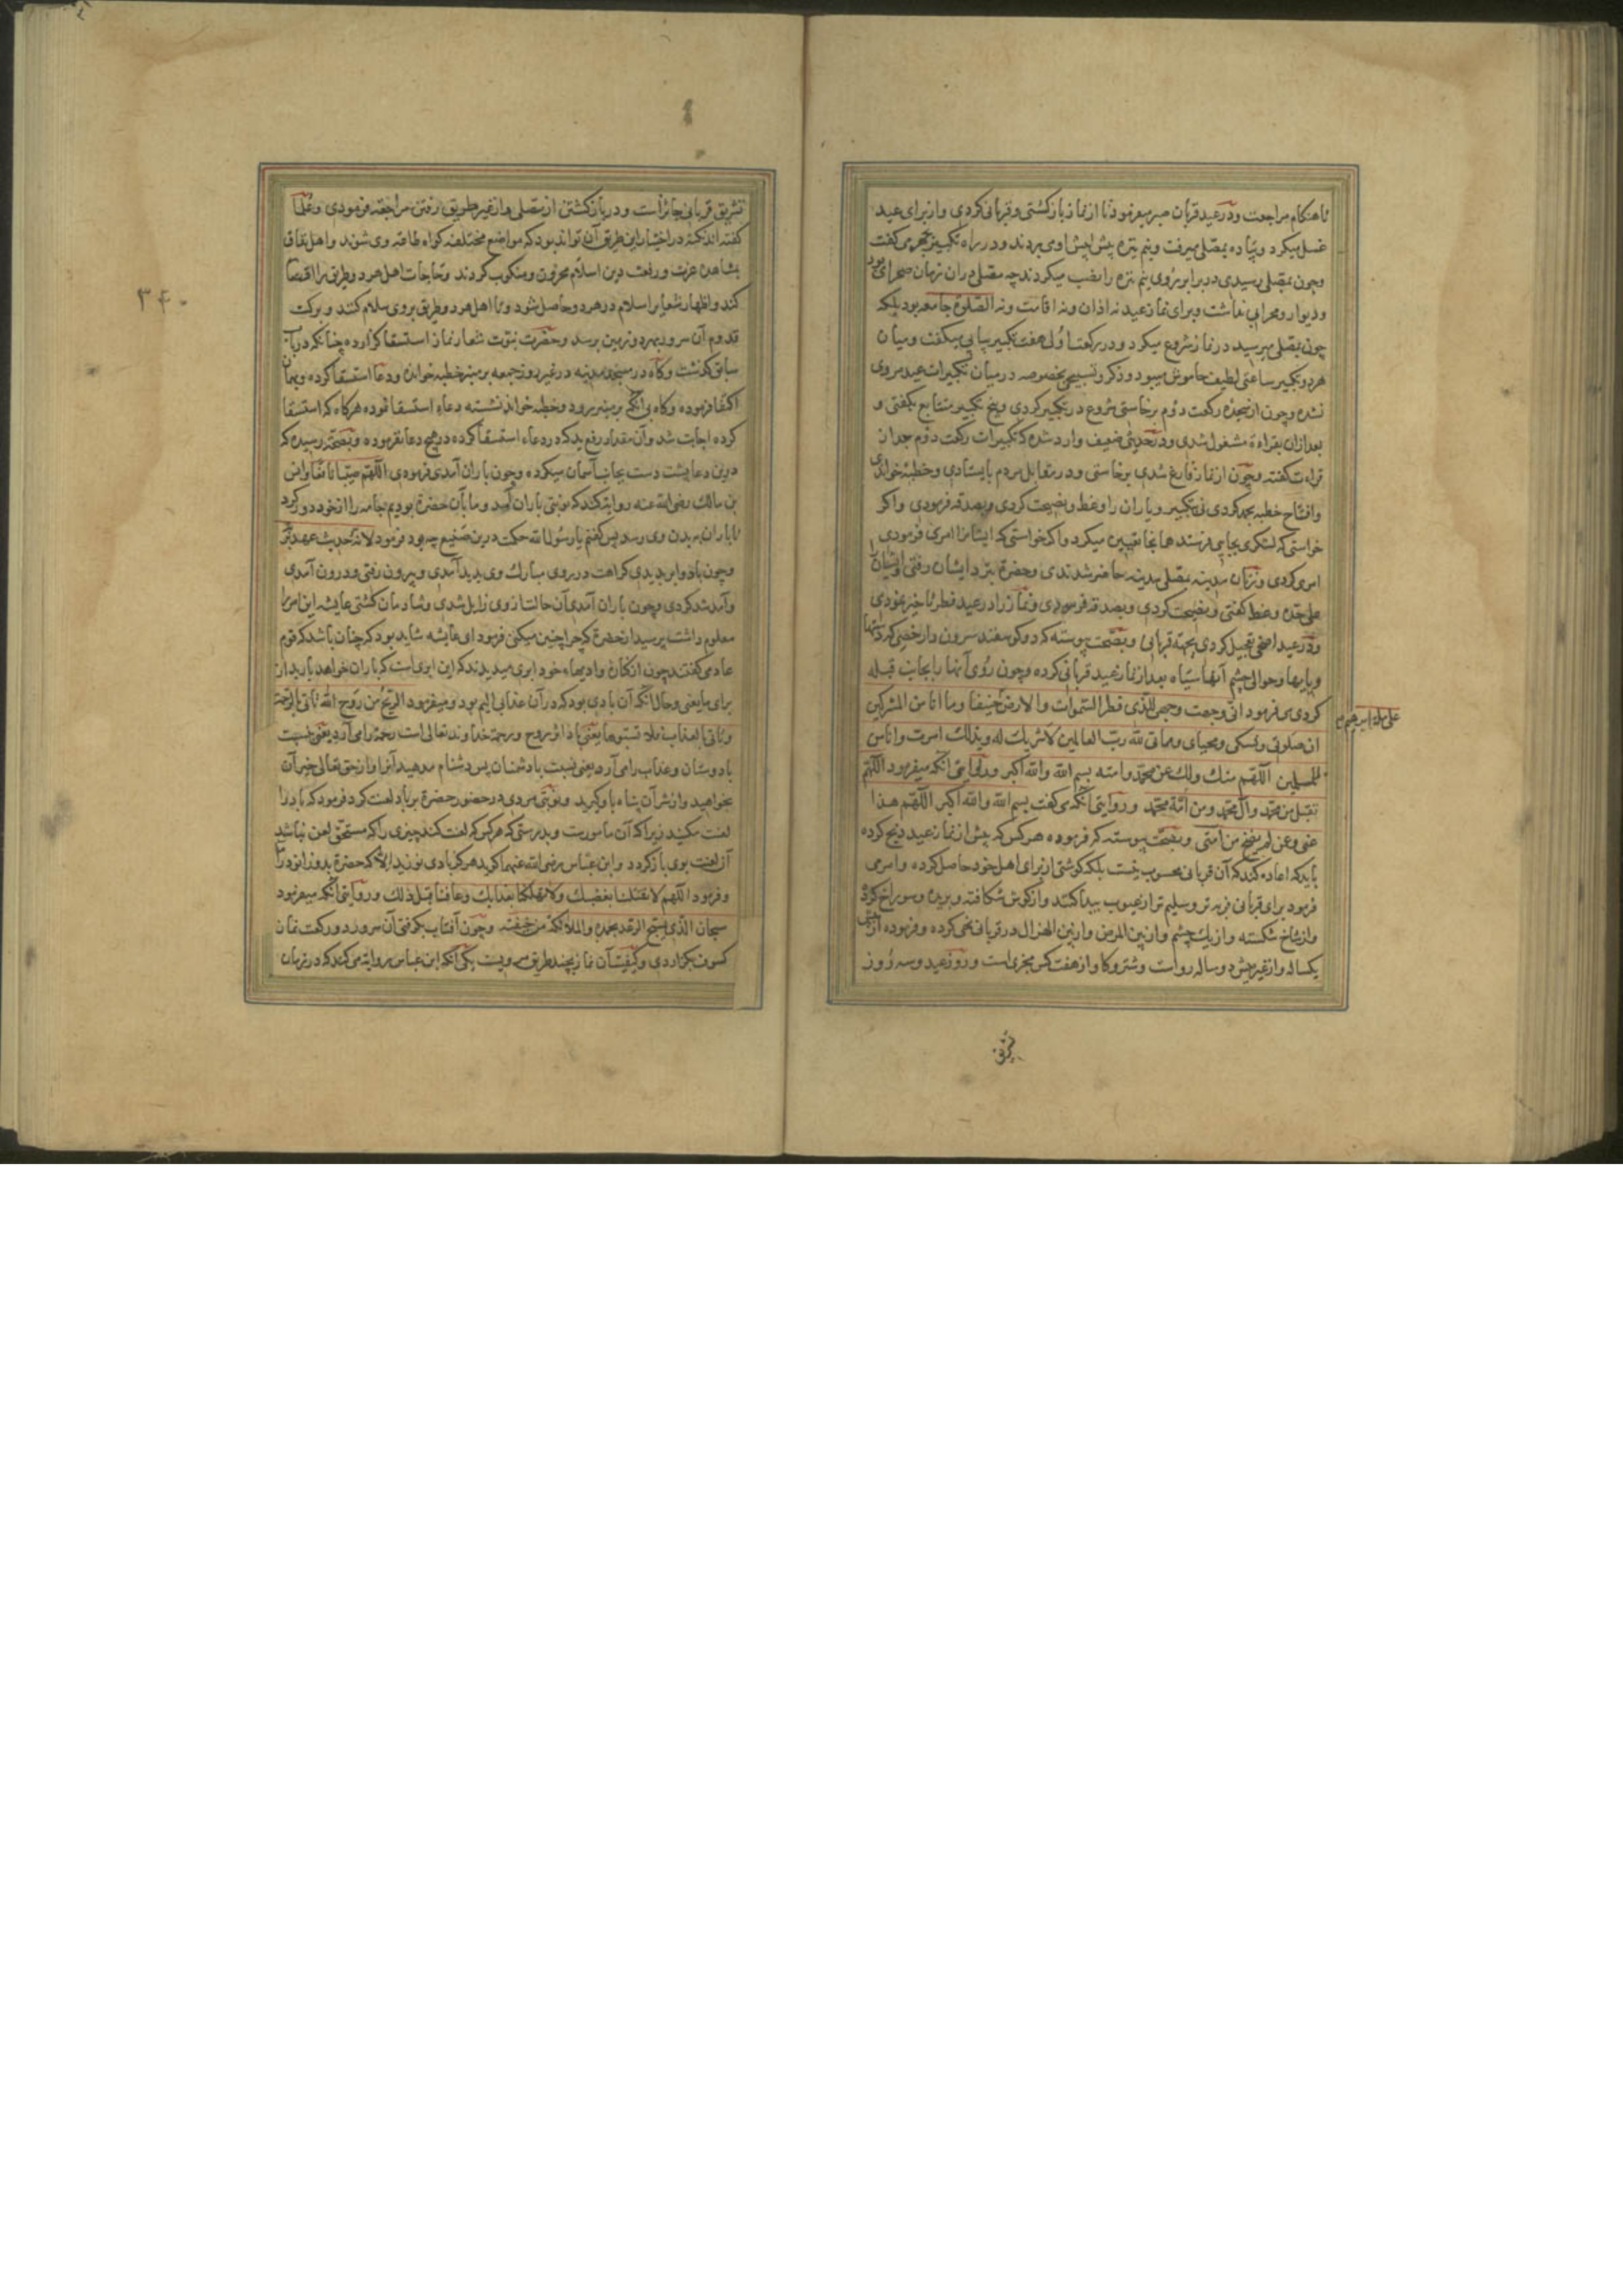 تا هنکام مراجعت و در عید قربان صبر میفرمود تا از نماز باز کشتی و قربانی کردی و از برای عید
غسل میکرد و پیاده بمصلی میرفت و نیم نیزه پیش پیش او می بردند و در راه تکبیر بجهر می کفت
و چون بمصلی رسیدی در برابر روی نیم نیزه را نصب میکردند چه مصلی در ان زمان صحرای بود
و دیوار و محرابی نداشت و برای نماز عید نه اذان و نه اقامت و نه الصلوة جامعه بود بلکه
چون بمصلی میرسید در نماز شروع میکرد و در رکعت اولی هفت تکبیر پیاپی میکفت و میان
هر دو تکبیر ساعتی لطیف خاموش میبود و ذکر و تسبیحی بخصوصه در میان تکبیرات عید مروی
نشده و چون از سجده رکعت دوم برخاستی شروع در تکبیر کردی و پنج تکبیر متتابع بکفتی و
بعد ازان بقراءة مشغول شدی و در حدیثی ضعیف وارد شده که تکبیرات رکعت دوم بعد از
قراءت کفته و چون از نماز فارغ شدی برخاستی و در مقابل مردم بایستادی و خطبه خواندی
و افتتاح خطبه بحمد کردی نی تکبیر و یاران را وعظ و نصیحت کردی و بصدقه فرمودی و اکر
خواستی که لشکری بجایی فرستد همانجا تعیین میکرد و اکر خواستی که ایشانرا امری فرمودی
امری کردی و زنان مدینه بمصلی مدینه حاضر شدندی و حضرة نزد ایشان رفتی و ایشان را
علی حده وعظ کفتی و نصیحت کردی و بصدقه فرمودی و نماز را در عید فطر تاخیر نمودی
و در عید اضحی تعجیل کردی بجهة قربانی و بصحت پیوسته که دو کوسفند سرون دار خصی که دستها
و پایها و حوالی چشم آنها سیاه بعد از نماز عید قربانی کرده و چون روی آنها را بجانب قبله
کردی می فرمود انی وجهت وجهی للذی فطر السموات والارض حنیفا وما انا من المشرکین
علی ملة ابرهیم
ان صلوتی ونسکی ومحیای ومماتی لله رب العالمین لا شریک له وبذلک امرت وانا من
المسلمین اللهم منک ولک عن محمد وامته بسم الله والله اکبر و در روایتی آنکه میفرمود اللهم
تقبل من محمد وآل محمد ومن امة محمد و در روایتی آنکه می کفت بسم الله والله اکبر اللهم هذا
عنی وعن لم یضح من امتی و بصحت پیوسته که فرموده هر کس که پیش از نماز عید ذبح کرده
باید که اعاده کند که آن قربانی محسوب نیست بلکه کوشتی از برای اهل خود حاصل کرده و امر می
فرمود برای قربانی فربه تر و سلیم تر از عیوب پیدا کنند و از کوش شکافته و بریده و سوراخ کرده
و از شاخ شکسته و از یک چشم و از بین المرض و از بین الهزال در قربانی نهی کرده و فرموده از میش
یکساله و از غیر میش دو ساله رواست و شتر و کاو از هفت کس مجزی است و روز عید و سه روز
تشریق
تشریق قربانی جائز است و در باز کشتن از مصلی و از غیر طریق رفتن مراجعه فرمودی و علما
کفته اند نکته در اختیار این طریق آن تواند بود که مواضع مختلفه کواه طاعة وی شوند و اهل نفاق
بمشاهده عزت و رفعت دین اسلام محزون و منکوب کردند و حاجات اهل هر دو طریق را اقتضا
کند و اظهار شعایر اسلام در هر دو حاصل شود و تا اهل هر دو طریق بر وی سلام کنند و برکت
قدوم آن سرور بهر دو زمین برسد و حضرت نبوت شعار نماز استسقا کزارده چنانکه در باب
سابق کذشت و کاه در مسجد مدینه در غیر روز جمعه بر منبر خطبه خوانده و دعا استسقا کرده و بهمان
اکتفا فرموده و کاه بی آنکه بر منبر رود و خطبه خواند نشسته دعاء استسقا نموده هرکاه که استسقا
کرده اجابت شد و آن مقدار رفع ید که در دعاء استسقا کرده در هیچ دعا نفرموده و بصحة رسیده که
درین دعا پشت دست بجانب آسمان میکرده و چون باران آمدی فرمودی اللهم صیبا نافعا و انس
بن مالک رضی الله عنه روایة کند که نوبتی باران آمد و ما با آن حضرة بودیم جامه را از خود دور کرد
تا باران به بدن وی رسد پس کفتم یا رسول الله حکمت درین صنیع چه بود فرمود لانه حدیث عهد بربه
و چون باد و ابر بدیدی کراهت در روی مبارک وی پدید آمدی و بیرون رفتی و درون آمدی
و آمد شد کردی و چون باران آمدی آن حالت از وی زایل شدی و شادمان کشتی عایشه این امر را
معلوم داشت پرسید از حضرة که چرا چنین میکنی فرمود ای عایشه شاید بود که چنان باشد که قوم
عاد می کفتند چون از کنار وادیهاء خود ابری میدیدند که این ابری است که باران خواهد بارید از
برای ما یعنی و حال آنکه آن بادی بود که در آن عذابی الیم بود و میفرمود الریح من روح الله تاتی بالرحمة
وتاتی بالعذاب فلا تسبوها یعنی باد اثر روح و رحمة خداوند تعالی است رحمة را می آرد یعنی نسبت
با دوستان و عذاب را می آرد یعنی نسبت با دشمنان پس دشنام مدهید آنرا و از حق تعالی خیر آن
بخواهید و از شر آن پناه باو کیرید و نوبتی مردی در حضور حضرة بر باد لعنت کرد فرمود که باد را
لعنت مکنید زیرا که آن مامورست و بدرستی که هر کس که لعنت کند چیزی را که مستحق لعن نباشد
آن لعنت بوی باز کردد و ابن عباس رضی الله عنهما کوید هرکز بادی نوزید الا که حضرة بدو زانو در آمد
و فرمود اللهم لا تقتلنا بغضبک ولا تهلکنا بعذابک وعافنا قبل ذلک و در روایتی آنکه میفرمود
سبحان الذی یسبح الرعد بحمده والملائکة من خیفته و چون آفتاب بکرفتی آن سرور دو رکعت نماز
کسوف بکزاردی و کیفیت آن نماز بچند طریق مرویست یکی آنکه ابن عباس روایة می کند که در زمان
۳۴۰